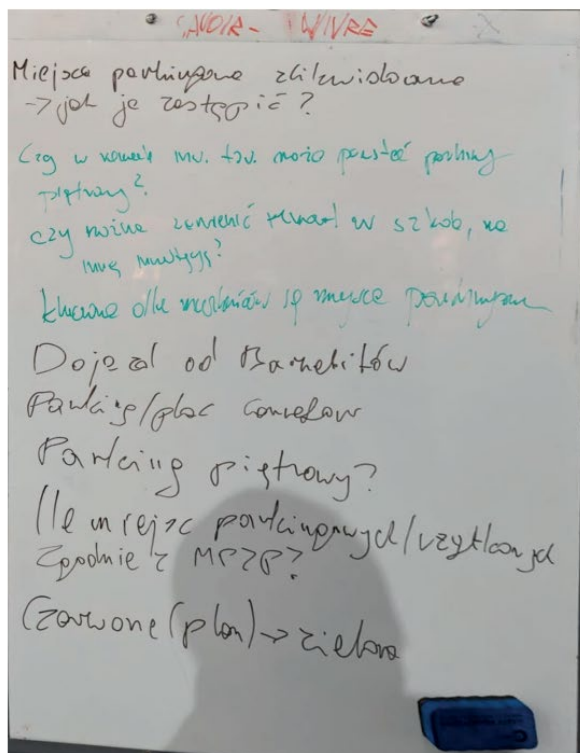 SAVOIR-VIVRE
Miejsca parkingowe zlikwidowane
-> jak je zastąpić?
Czy w ramach inw. tow. może powstać parking
piętrowy?
czy można zamienić teren w szkołę, na
inną
kluczowe dla mieszkańców są miejsca parkingowe
Dojazd od Barnabitów
Parking/plac
Parking piętrowy?
Ile miejsc parkingowych/użytkowych
Zgodnie z MPZP?
Czerwone (plan) -> zielone